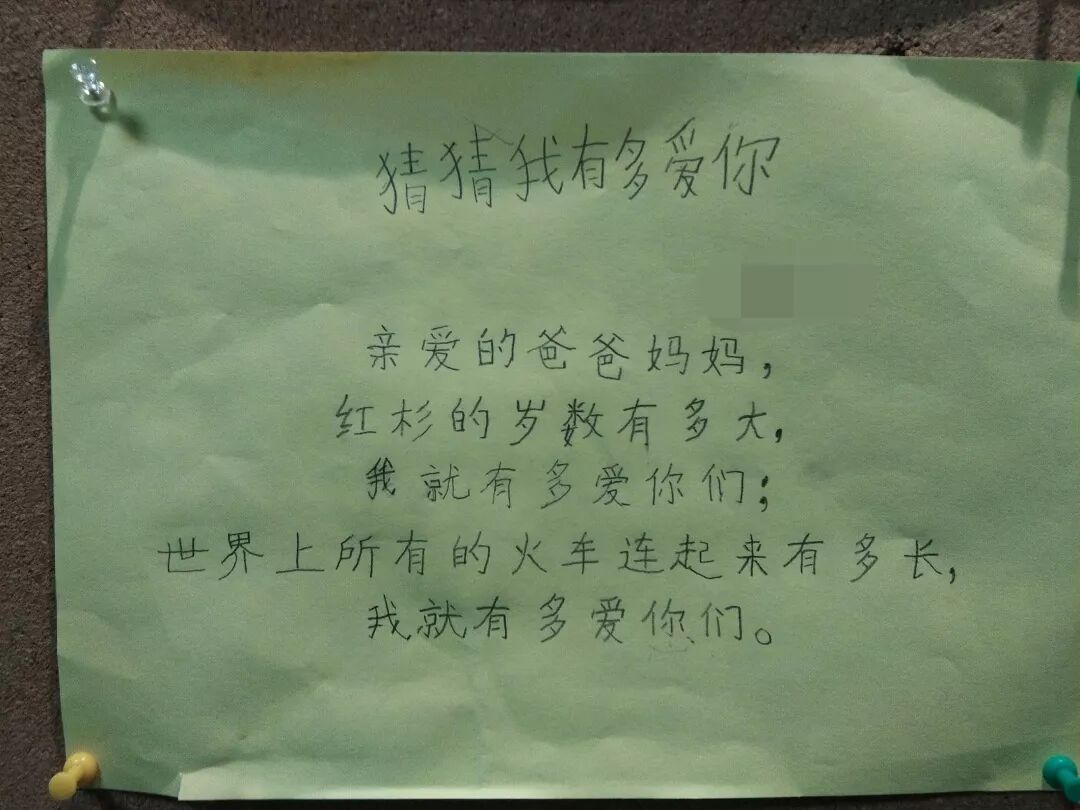 猜猜我有多爱你
亲爱的爸爸妈妈，
红杉的岁数有多大，
我就有多爱你们；
世界上所有的火车连起来有多长，
我就有多爱你们。